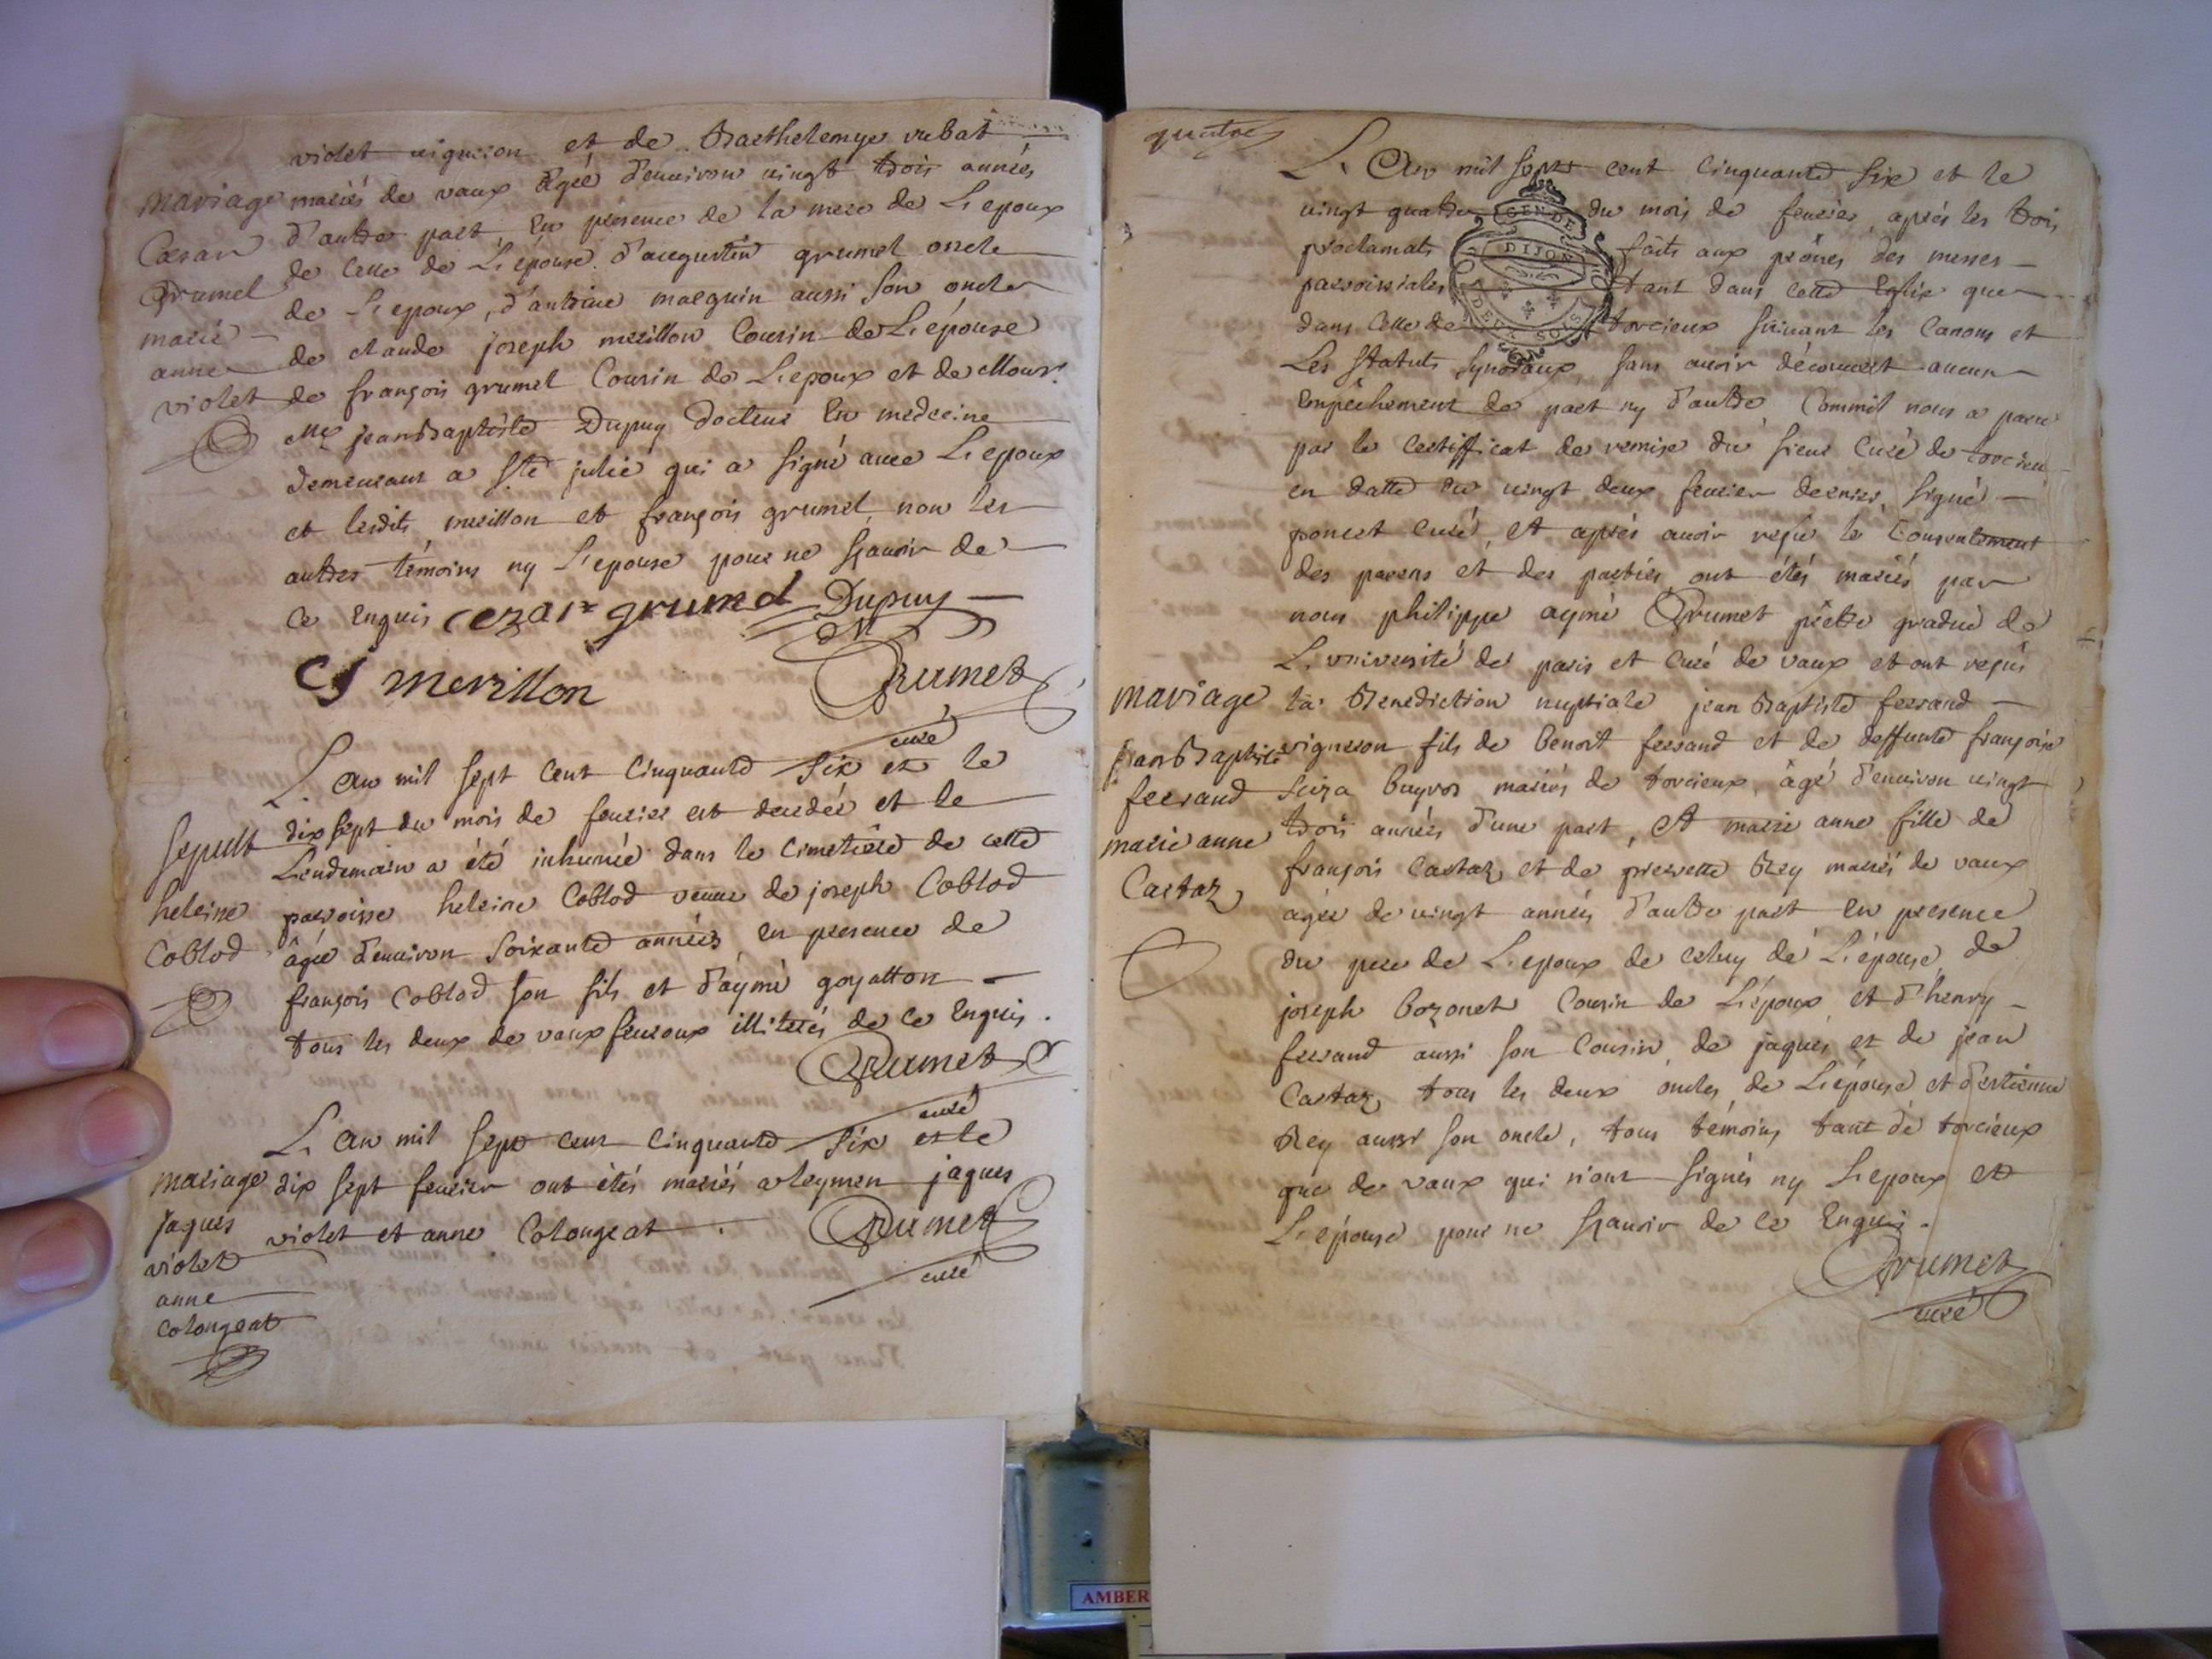 violet vigneron et de Barthelemye rubat
mariage
mariés de vaux âgée d'environ vingt trois années
Cæsar
d'autre part en presence de la mere de L'epoux
Grumel
de celle de L'épouse d'augustin grumel oncle
marie
de L'epoux, d'antoine marguin aussi son oncle
anne
de claude joseph merillon Cousin de L'épouse
violet
de françois grumel Cousin de L'epoux et de Monsr
jean Baptiste Dupuy docteur En medecine
demeurant a Ste julie qui a signé avec L'epoux
et lesdits merillon et françois grumel non les
autres témoins ny L'epouse pour ne sçavoir de
ce Enquis cezar grumel Dupuy
DM
CJ merillon
Grumet
curé
L'an mil sept cent Cinquante six et le
dix sept du mois de fevrier est decedée et le
sepult
Lendemain a été inhumée dans le Cimetière de cette
heleine
parroisse heleine Coblod veuve de joseph Coblod
Coblod
âgée d'environ soixante années en presence de
françois Coblod son fils et d'aymé goyatton
tous les deux de vaux fevroux illiterés de ce Enquis.
Grumet
curé
L'an mil sept cent Cinquante six et le
mariage
dix sept fevrier ont étés mariés a leymen jaques
jaques
violet et anne Colongeat.
Grumet
curé
violet
anne
Colongeat
quatre
L'An mil sept cent Cinquante six et le
vingt quatre du mois de fevrier, aprés les trois
proclamats faits aux prônes des messes
parroissiales tant dans cette Eglise que
dans celle de torcieux suivant les Canons et
Les statuts synodaux, sans avoir découvert aucun
Empêchement de part ny d'autre, Comm'il nous a paru
par le Certifficat de remise du sieur Curé de torcieu
en datte du vingt deux fevrier dernier, signé
poncet curé, et aprés avoir reçu le Consentement
des parens et des parties, ont étés mariés par
nous philippe aymé Grumet prêtre gradué de
L'université de paris et Curé de vaux et ont reçus
mariage
la Benediction nuptiale jean Baptiste ferrand
jean Baptiste
vigneron fils de benoit ferrand et de deffunte françoise
ferrand
buyron mariés de torcieux, âgé d'environ vingt
marie anne
trois années d'une part, Et marie anne fille de
Castaz
françois Castaz et de pierrette Rey mariés de vaux
agée de vingt années d'autre part en presence
du pere de L'epoux de celuy de L'épouse, de
joseph bozonet Cousin de L'époux et d'henry
ferrand aussi son Cousin, de jaques et de jean
Castaz tous les deux oncles de L'épouse et d'estienne
Rey aussi son oncle, tous témoins tant de torcieux
que de vaux qui n'ont signés ny L'epoux et
L'épouse pour ne sçavoir de ce Enquis.
Grumet
curé
GEN DE
DIJON
AMBER